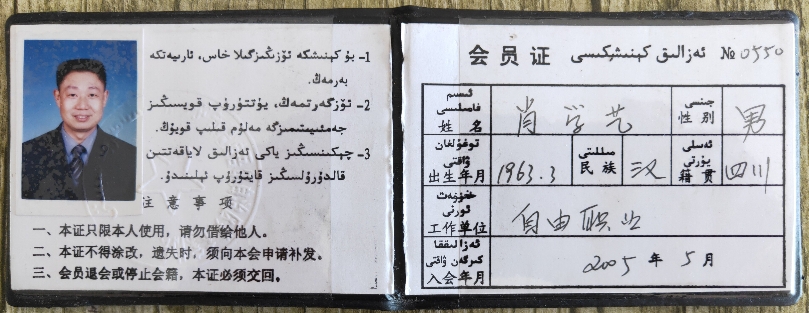 1- بۇ كېنىشكە ئۆزىڭىزگىلا خاس، ئارىيەتكە
بەرمەڭ.
2- ئۆزگەرتمەڭ، يۈتتۈرۈپ قويسىڭىز
جەمئىيىتىمىزگە مەلۇم قىلىپ قويۇڭ.
3- چېكىنسىڭىز ياكى ئەزالىق لاياقەتتىن
قالدۇرۇلسىڭىز قايتۇرۇپ بېرىسىز.
注意事项
一、本证只限本人使用，请勿借给他人。
二、本证不得涂改，遗失时，须向本会申请补发。
三、会员退会或停止会籍，本证必须交回。
会员证 ئەزالىق كېنىشكىسى №0550
ئىسىم
فامىلىسى
姓名 肖学艺 جىنسى
性别 男
تۇغۇلغان
ۋاقتى
出生年月 1963.3 مىللىتى
民族 汉 ئەسلى
يۇرتى
籍贯 四川
خىزمەت
ئورنى
工作单位 自由职业
ئەزالىققا
كىرگەن ۋاقتى
入会年月 2005年5月